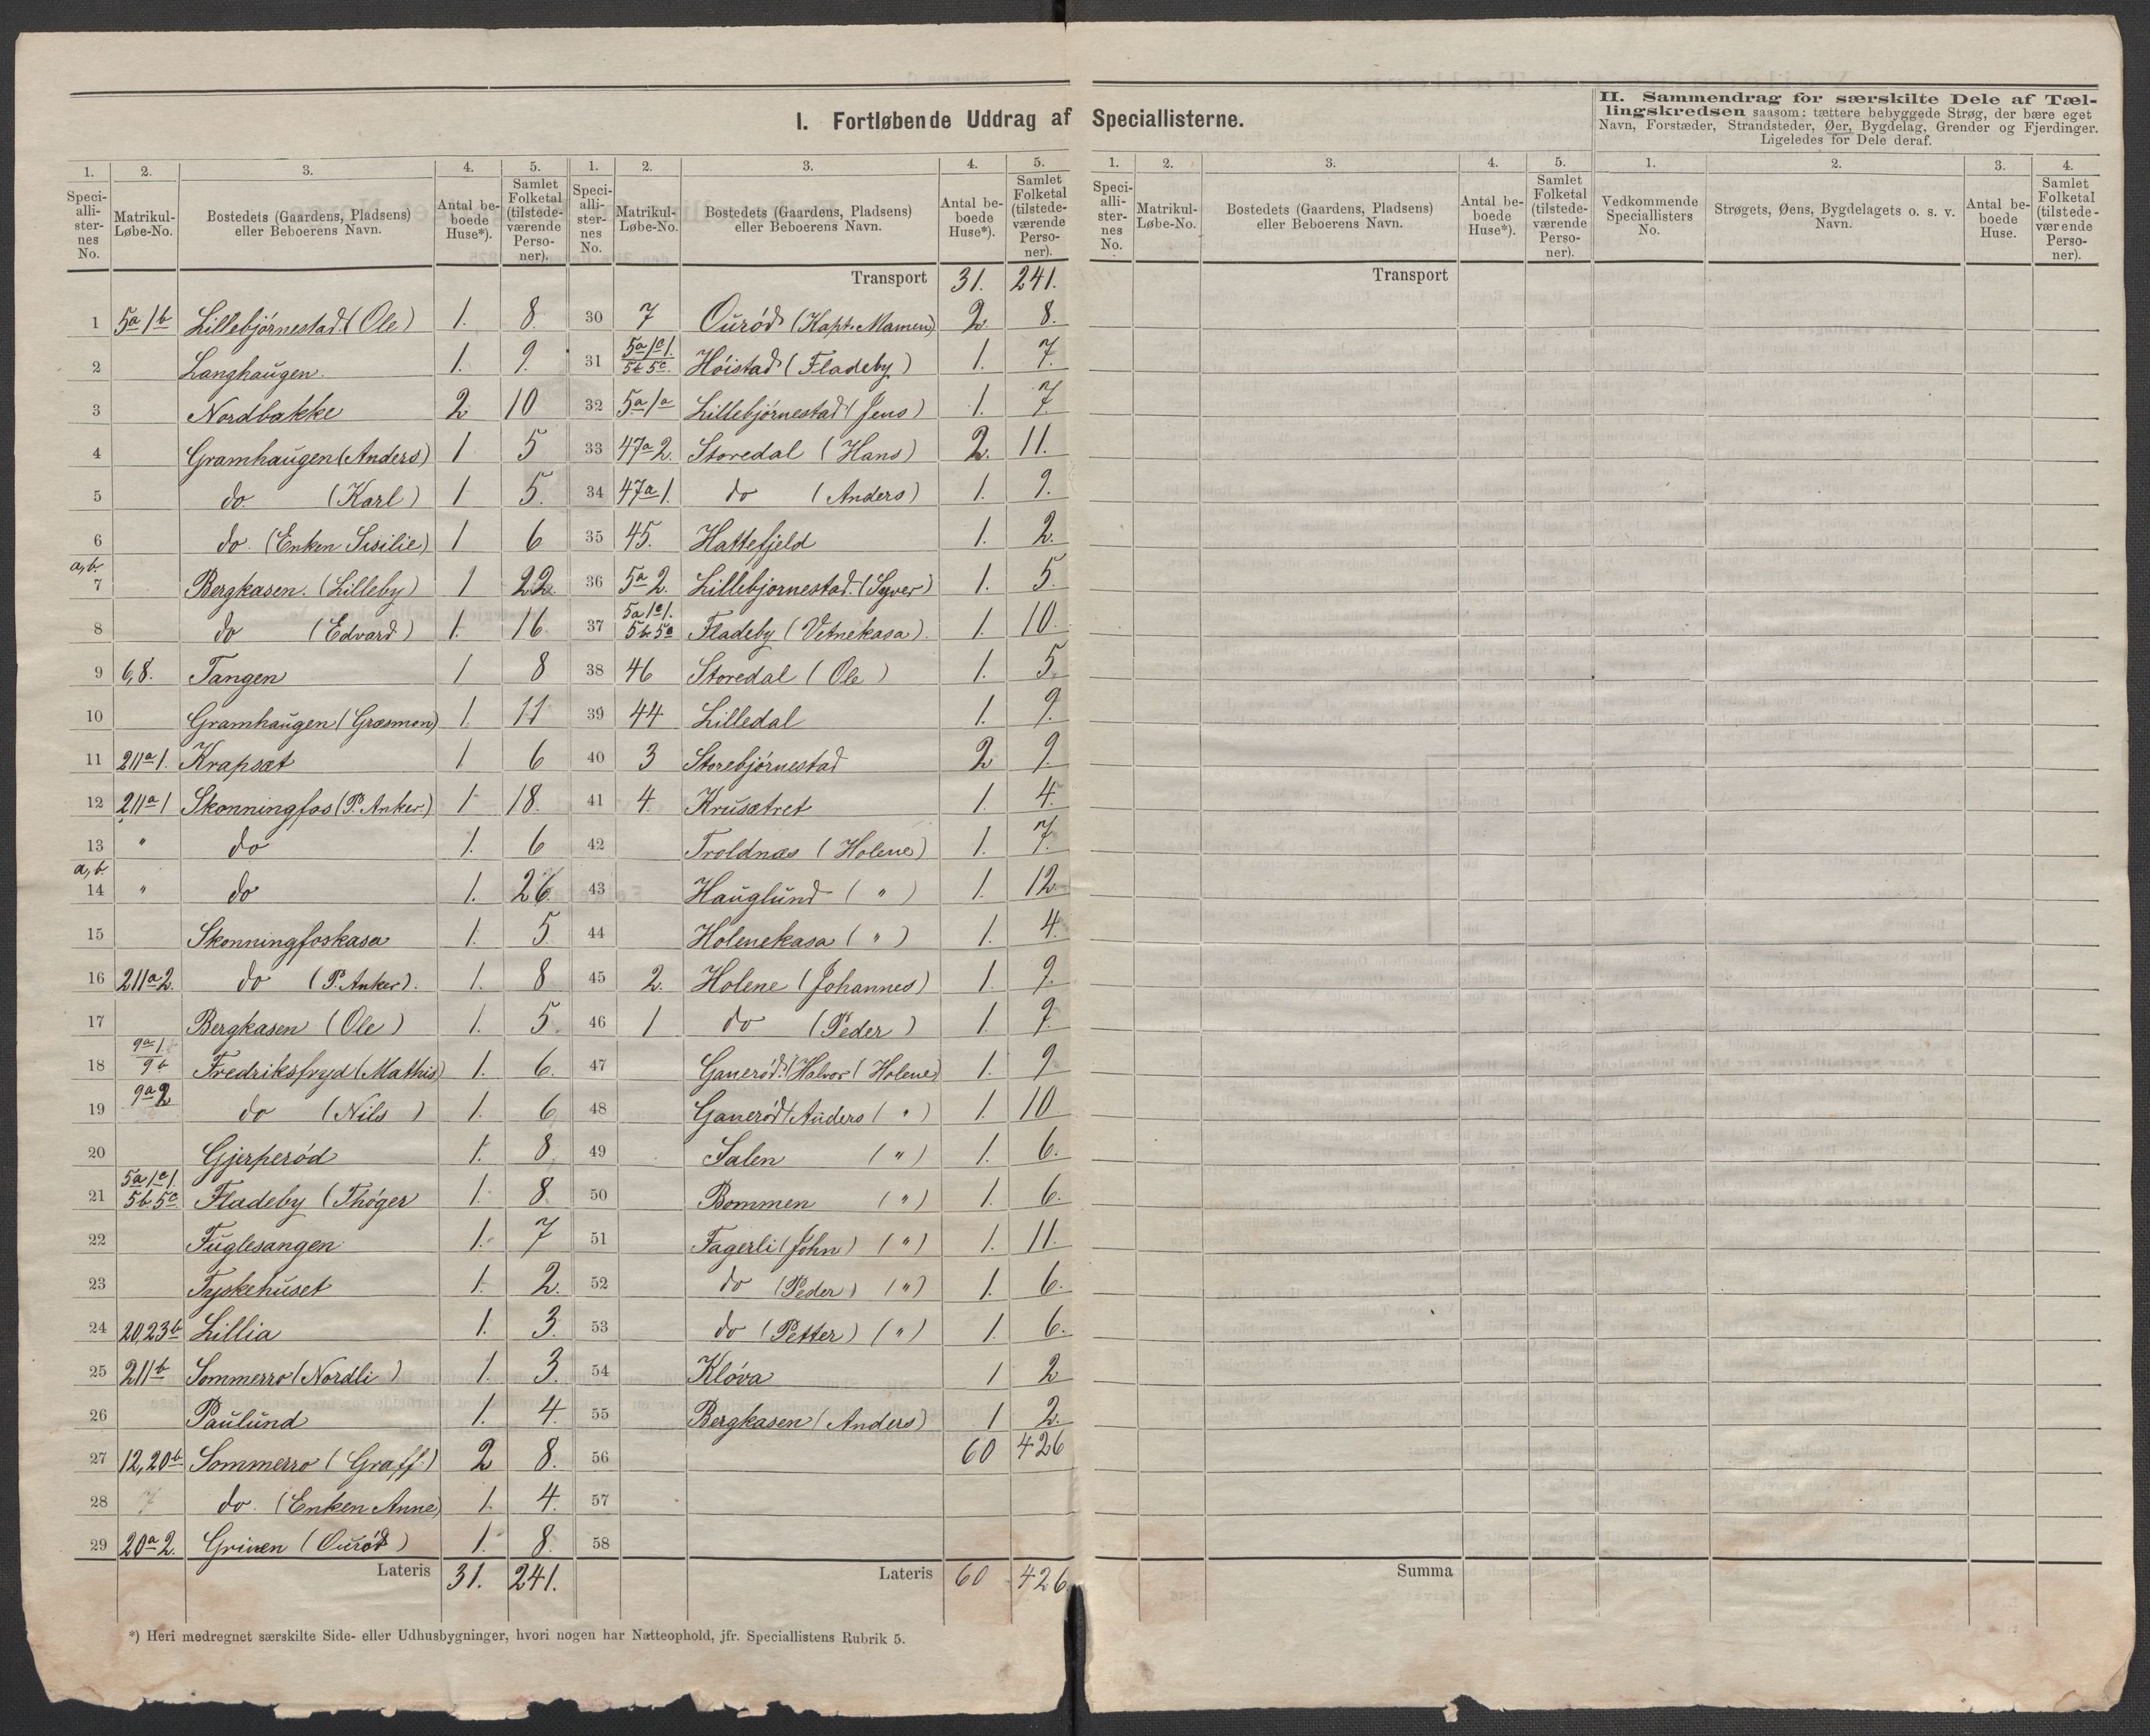 I. Fortløbende Uddrag af Speciallisterne.
II. Sammendrag for særskilte Dele af Tæl-
lingskredsen saasom: tættere bebyggede Strøg, der bære eget
Navn, Forstæder, Strandsteder, Øer, Bygdelag, Grender og Fjerdinger.
Ligeledes for Dele deraf.
1. 2. 3. 4. 5. 1. 2. 3. 4. 5.
Speci-alli-ster-nes No. Matrikul-Løbe-No. Bostedets (Gaardens, Pladsens) eller Beboerens Navn. Antal be-boede Huse*). Samlet Folketal (tilstede-værende Perso-ner).
Speci-alli-ster-nes No. Matrikul-Løbe-No. Bostedets (Gaardens, Pladsens) eller Beboerens Navn. Antal be-boede Huse*). Samlet Folketal (tilstede-værende Perso-ner).
1 5a 1b Lillebjörnestad (Ole) 1. 8.
2 Langhaugen. 1. 9.
3 Nordbakke 2 10
4 Gramhaugen (Anders) 1 5
5 do. (Karl) 1 5.
6 do. (Enken Sisilie) 1 6
a, b. 7 Bergkasen. (Lilleby) 1 22.
8 do (Edvard) 1. 16.
9 6,8. Tangen 1 8
10 Gramhaugen (Græsmen) 1. 11
11 211a 1. Krapsæt 1 6
12 211a 1 Skonningfos (P. Anker) 1 18.
13 " do 1. 6
a, b. 14 " do 1. 26
15 Skonningfoskasa 1. 5
16 211a 2. do (P. Anker). 1. 8
17 Bergkasen (Ole) 1. 5.
18 9a 1. 9b Fredriksfryd (Mathis) 1. 6.
19 9a 2 do (Nils) 1. 6
20 Gjerperöd 1. 8.
21 5a 1c 1. 5b 5c Fladeby (Thöger 1. 8
22 Fuglesangen 1. 7
23 Tyskehuset 1. 2.
24 20,23b Lillia 1. 3.
25 211b Sommerro (Nordli) 1. 3.
26 Paulund 1. 4.
27 12,20b Sommerro (Graff) 2 8.
28 7 do. (Enken Anne) 1. 4.
29 20a 2. Grinen (Ouröd) 1. 8.
Lateris 31. 241.
Transport 31. 241.
30 7 Ouröd (Kapt. Mamen) 2. 8.
31 5a 1c 1. 5b 5c. Höistad (Fladeby) 1. 7.
32 5a 1a Lillebjörnestad (Jens) 1. 7.
33 47a 2. Storedal (Hans) 2. 11.
34 47a 1. do (Anders) 1. 9.
35 45. Hattefjeld 1. 2.
36 5a 2. Lillebjornestad. (Syver) 1. 5.
37 5a 1c 1. 5b 5c Fladeby (Vetnekasa). 1. 10.
38 46 Storedal (Ole) 1. 5.
39 44 Lilledal 1. 9.
40 3 Storebjörnestad 2 9.
41 4. Krusætret 1. 4.
42 Troldnæs (Holene) 1. 7.
43 Hauglund (") 1. 12.
44 Holenekasa (") 1. 4.
45 2. Holene (Johannes) 1. 9.
46 1 do (Peder) 1 9.
47 Ganeröd (Halvor (Holene) 1. 9
48 Ganeröd (Anders (") 1. 10
49 Salen (") 1. 6.
50 Bommen (") 1. 6.
51 Fagerli (John) (") 1. 11.
52 do (Peder) (") 1. 6.
53 do (Petter) (") 1. 6.
54 Klöva 1 2
55 Bergkasen (Anders) 1 2.
56 60 426
57
58
Lateris 60 426
*) Heri medregnet særskilte Side- eller Udhusbygninger, hvori nogen har Natteophold, jfr. Speciallistens Rubrik 5.
1. 2. 3. 4. 5. 1. 2. 3. 4.
Speci-alli-ster-nes No. Matrikul-Løbe-No. Bostedets (Gaardens, Pladsens) eller Beboerens Navn. Antal be-boede Huse*). Samlet Folketal (tilstede-værende Perso-ner).
Vedkommende Speciallisters No. Strøgets, Øens, Bygdelagets o. s. v. Navn. Antal be-boede Huse. Samlet Folketal (tilstede-værende Perso-ner).
Transport
Summa